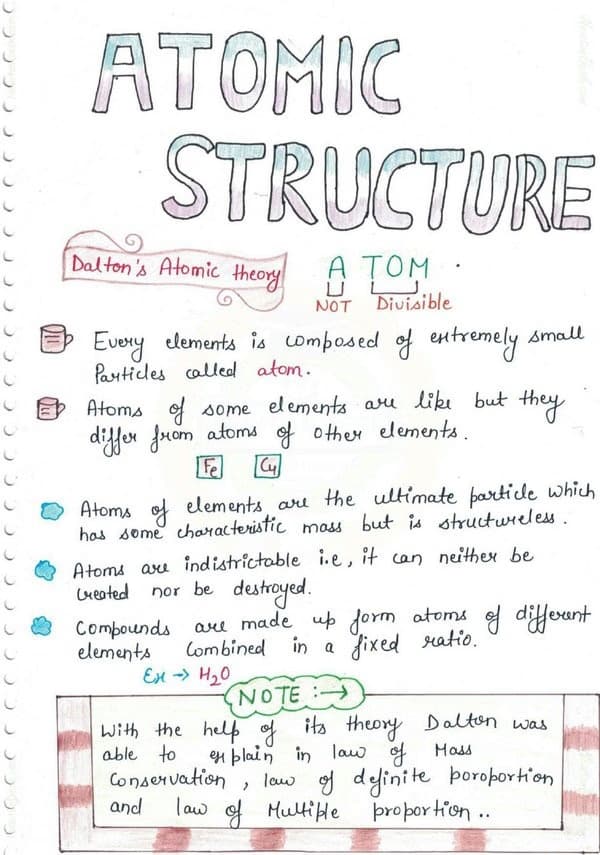 ATOMIC
STRUCTURE
Dalton's Atomic theory
A TOM
NOT Divisible
Every elements is composed of extremely small
Particles called atom.
Atoms of some elements are like but they
differ from atoms of other elements.
Fe Cu
Atoms of elements are the ultimate particle which
has some characteristic mass but is structureless.
Atoms are indistrictable i.e, it can neither be
created nor be destroyed.
Compounds are made up form atoms of different
elements combined in a fixed ratio.
Ex → H₂O
NOTE :→
With the help of its theory Dalton was
able to explain in law of Mass
Conservation, law of definite poroportion
and law of Multiple proportion..